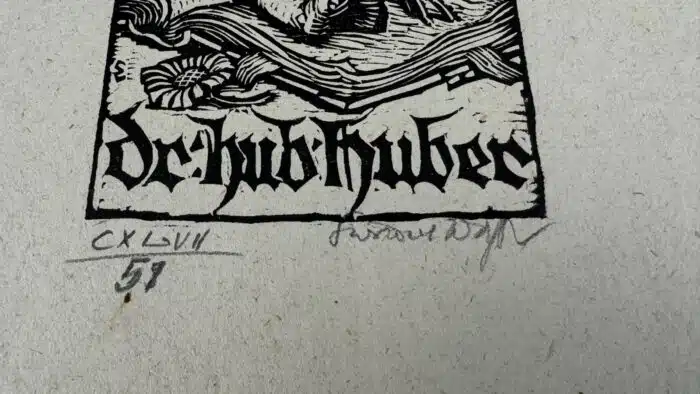 Dr·hub·Huber
CXLVII
57